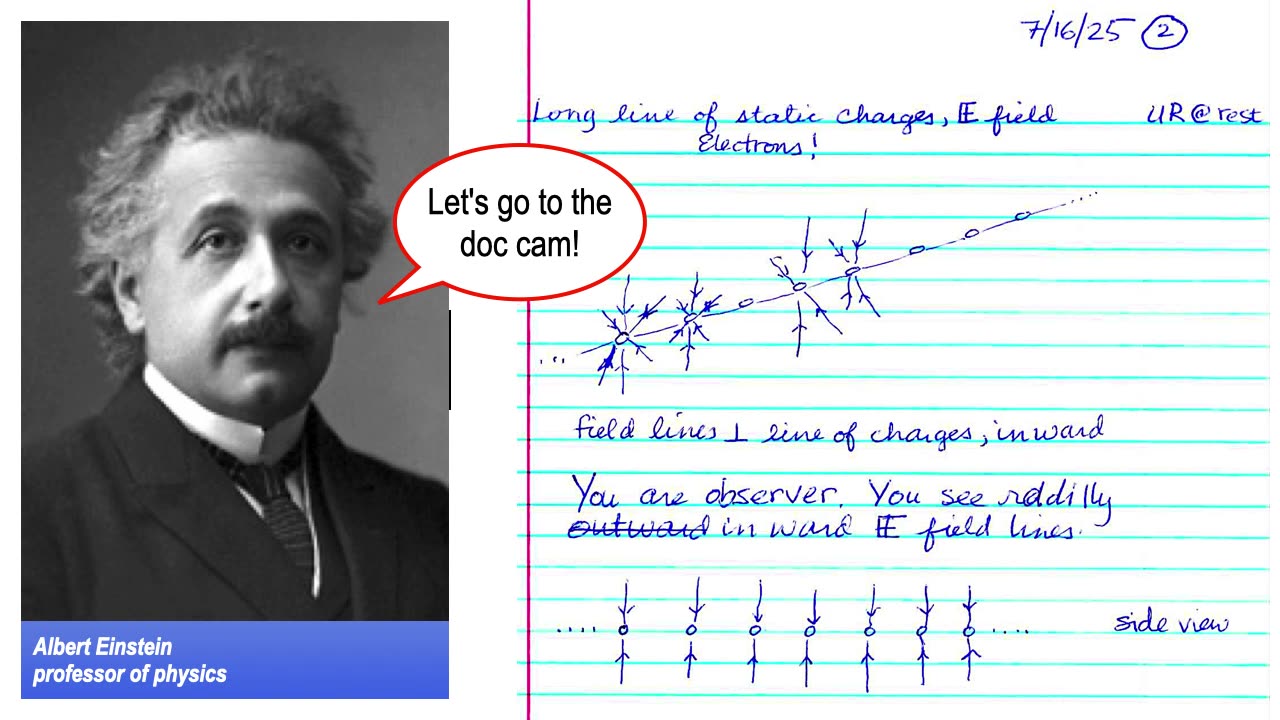 7/16/25 2
Long line of static charges, E field UR@rest
Electrons!
Let's go to the
doc cam!
....
...
field lines ⊥ line of charges, inward
You are observer. You see rddilly
outward in ward E field lines.
.... .... side view
Albert Einstein
professor of physics